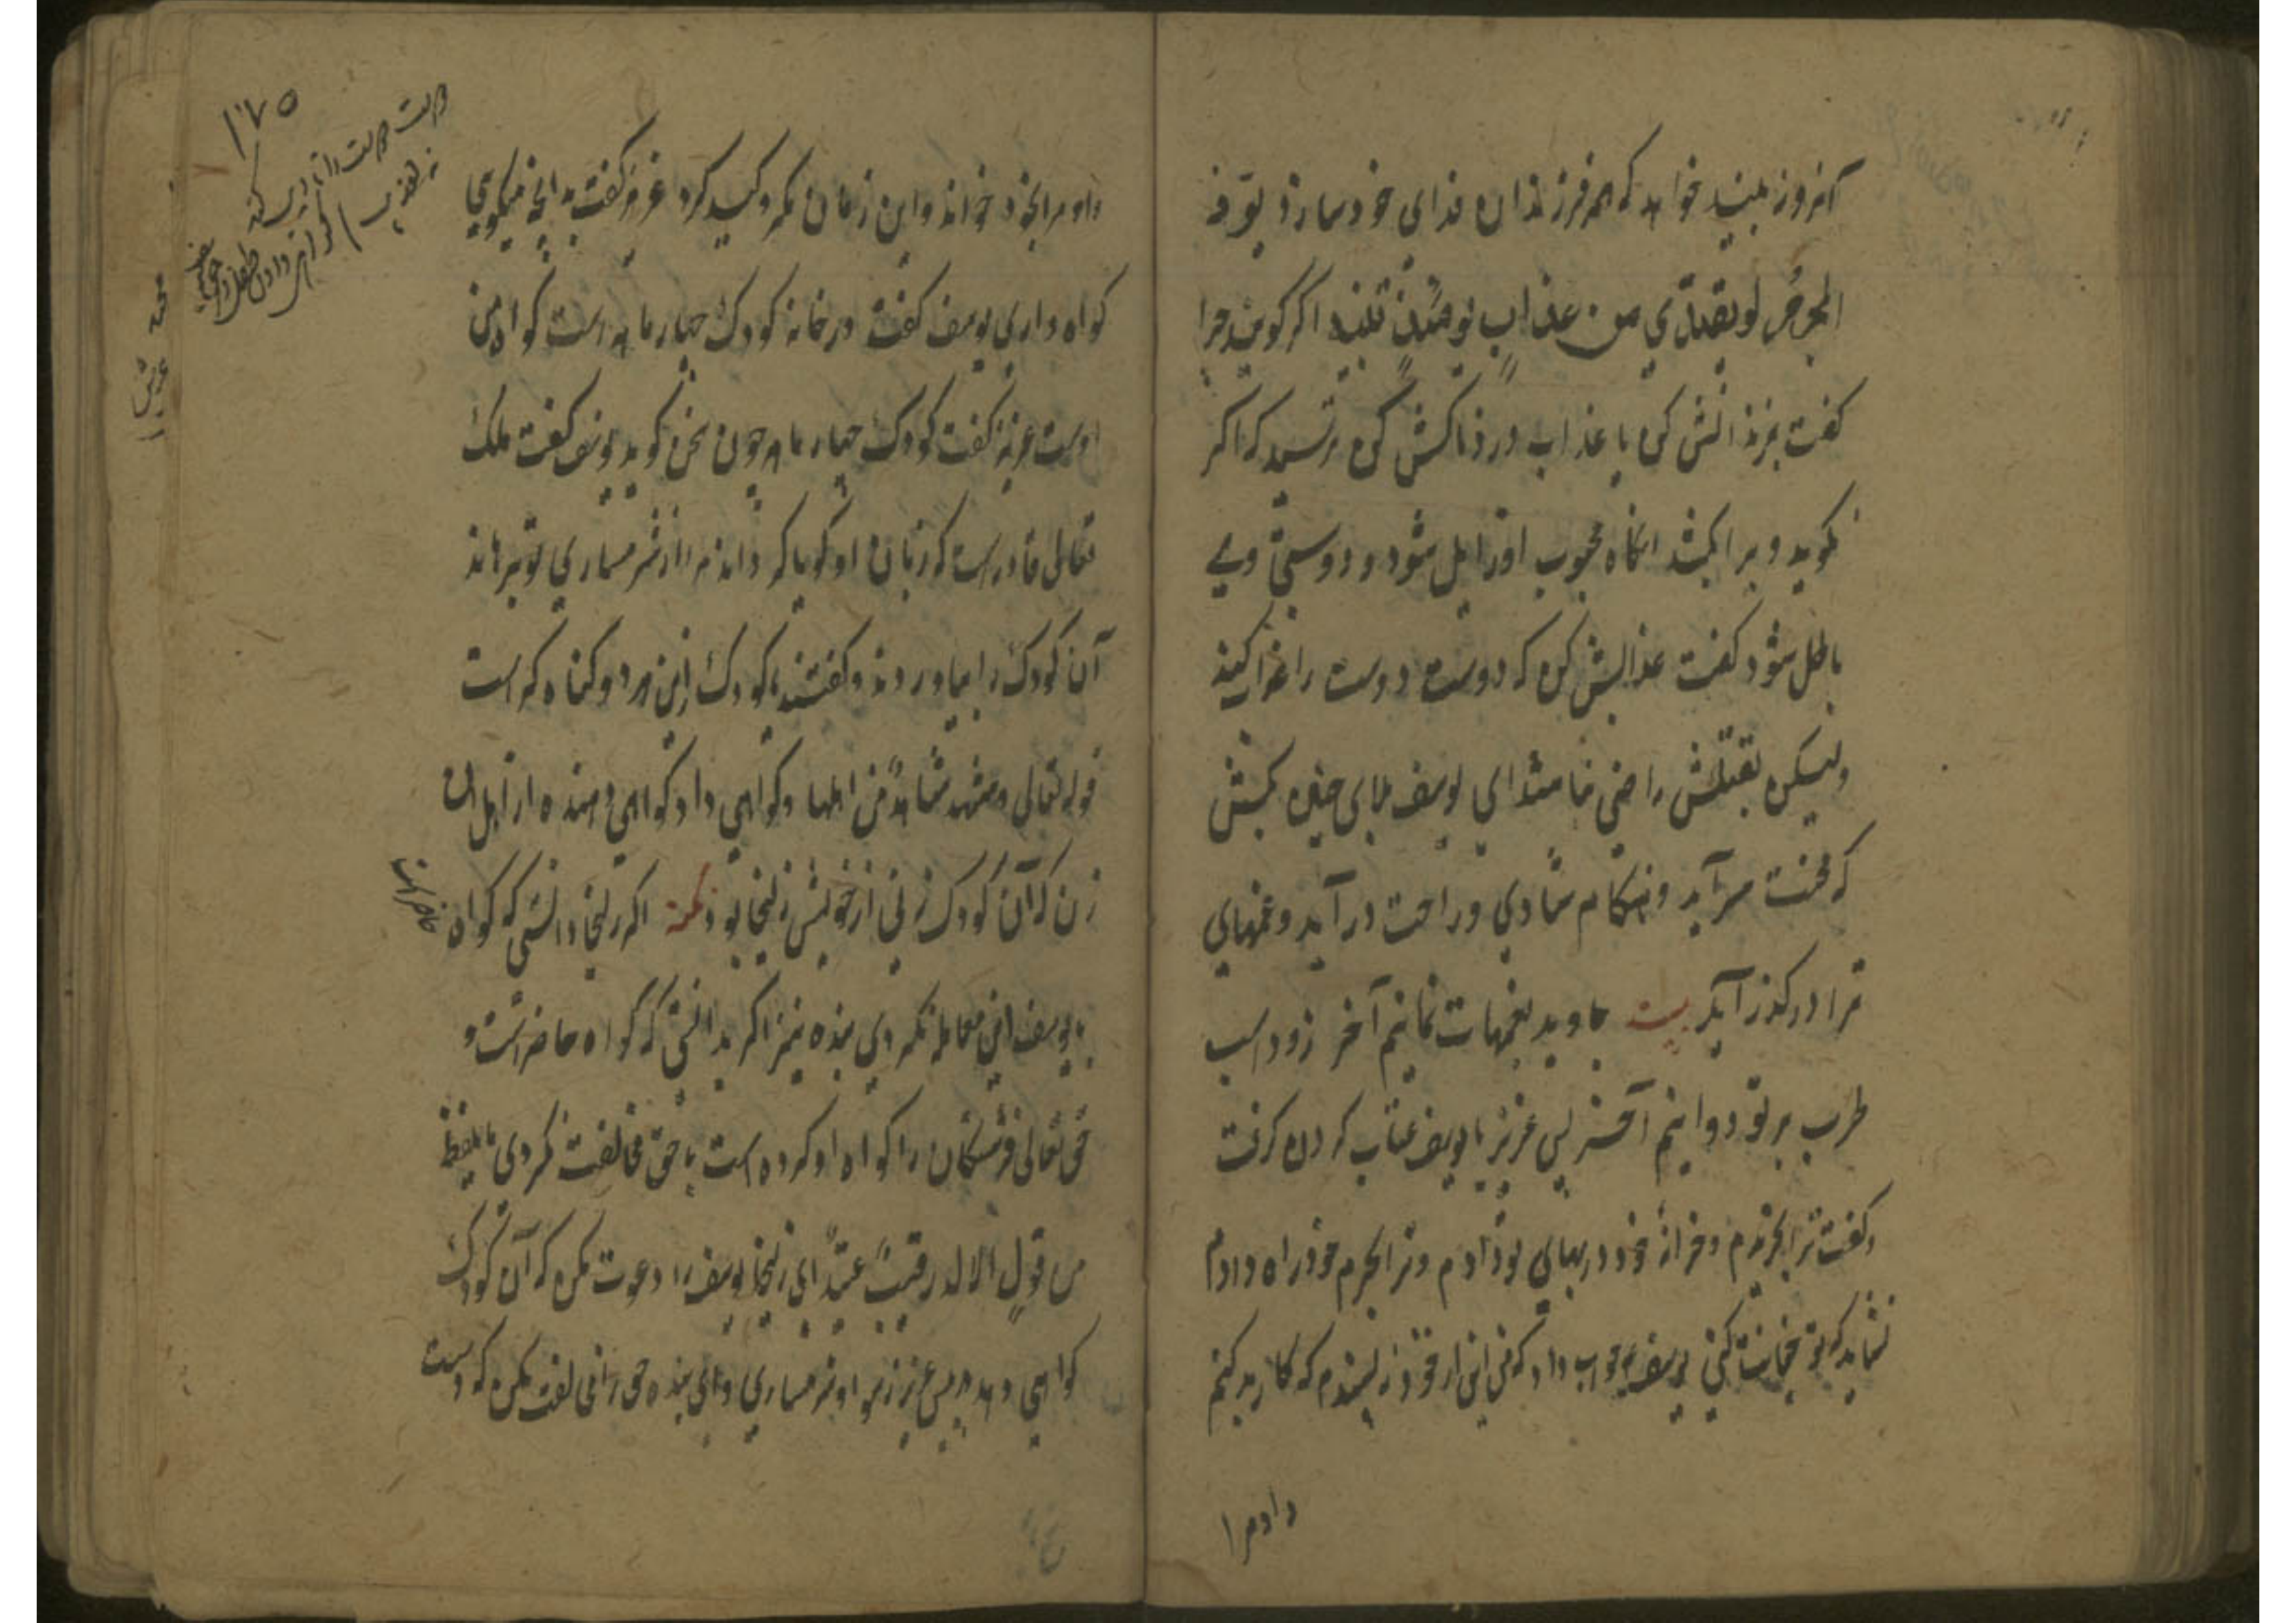 آنروز بیند خواهد که همه فرزندان فدای خود سازد یود
المجرم لو یفتدی من عذاب یومئذ ببنیه اگر گویند چرا
گفت بزندانش کن یا عذاب دردناکش کن ترسید که اگر
نگوید ویرا بکشد آنگاه محبوب او زایل شود و دوستی وی
باطل شود گفت عذابش کن که دوست دوست را عذاب کند
ولیکن بقتلش راضی نباشد ای یوسف بلای چنین بکش
که محنت سرآید و هنگام شادی و راحت درآید و غمهای
ترا در گذر آید بیت جاوید بغمهات نمانیم آخر زود اسب
طرب بر تو دوانیم آخر پس عزیز با یوسف عتاب کردن گرفت
و گفت ترا بخریدم و خزانهٔ خود در بهای تو دادم و ترا بحرم خود راه دادم
نشاید که تو خیانت کنی یوسف جواب داد که من این از خود نپسندم که کار بد کنم
داد مرا
۱۷۵
داد مرا بخود خواند و این زمان مکر و کید کرد عزیز گفت بدانچه میگویی
گواه داری یوسف گفت در خانه کودک چهار ماهه است گواه من
اوست عزیز گفت کودک چهار ماهه چون سخن گوید یوسف گفت ملک
تعالی قادر است که زبان او گویا گرداند مرا از شرمساری تو برهاند
آن کودک را بیاوردند و گفتند ای کودک ازین هر دو گناه که است
قوله تعالی و شهد شاهد من اهلها و گواهی داد گواهی دهنده از اهل آن
زن که آن کودک زنی از خویش زلیخا بود نکته اگر زلیخا دانستی که گواه
حاضر است
با یوسف این معامله نکردی بنده نیز اگر بدانستی که گواه حاضر است و
حق تعالی فرشتگان را گواه او کرده است با حق مخالفت نکردی ما یلفظ
من قول الا لدیه رقیب عتید ای زلیخا یوسف را دعوت مکن که آن کودک
گواهی دهد پیش عزیز و تو شرمساری و ای بنده حق را مخالفت مکن که دست